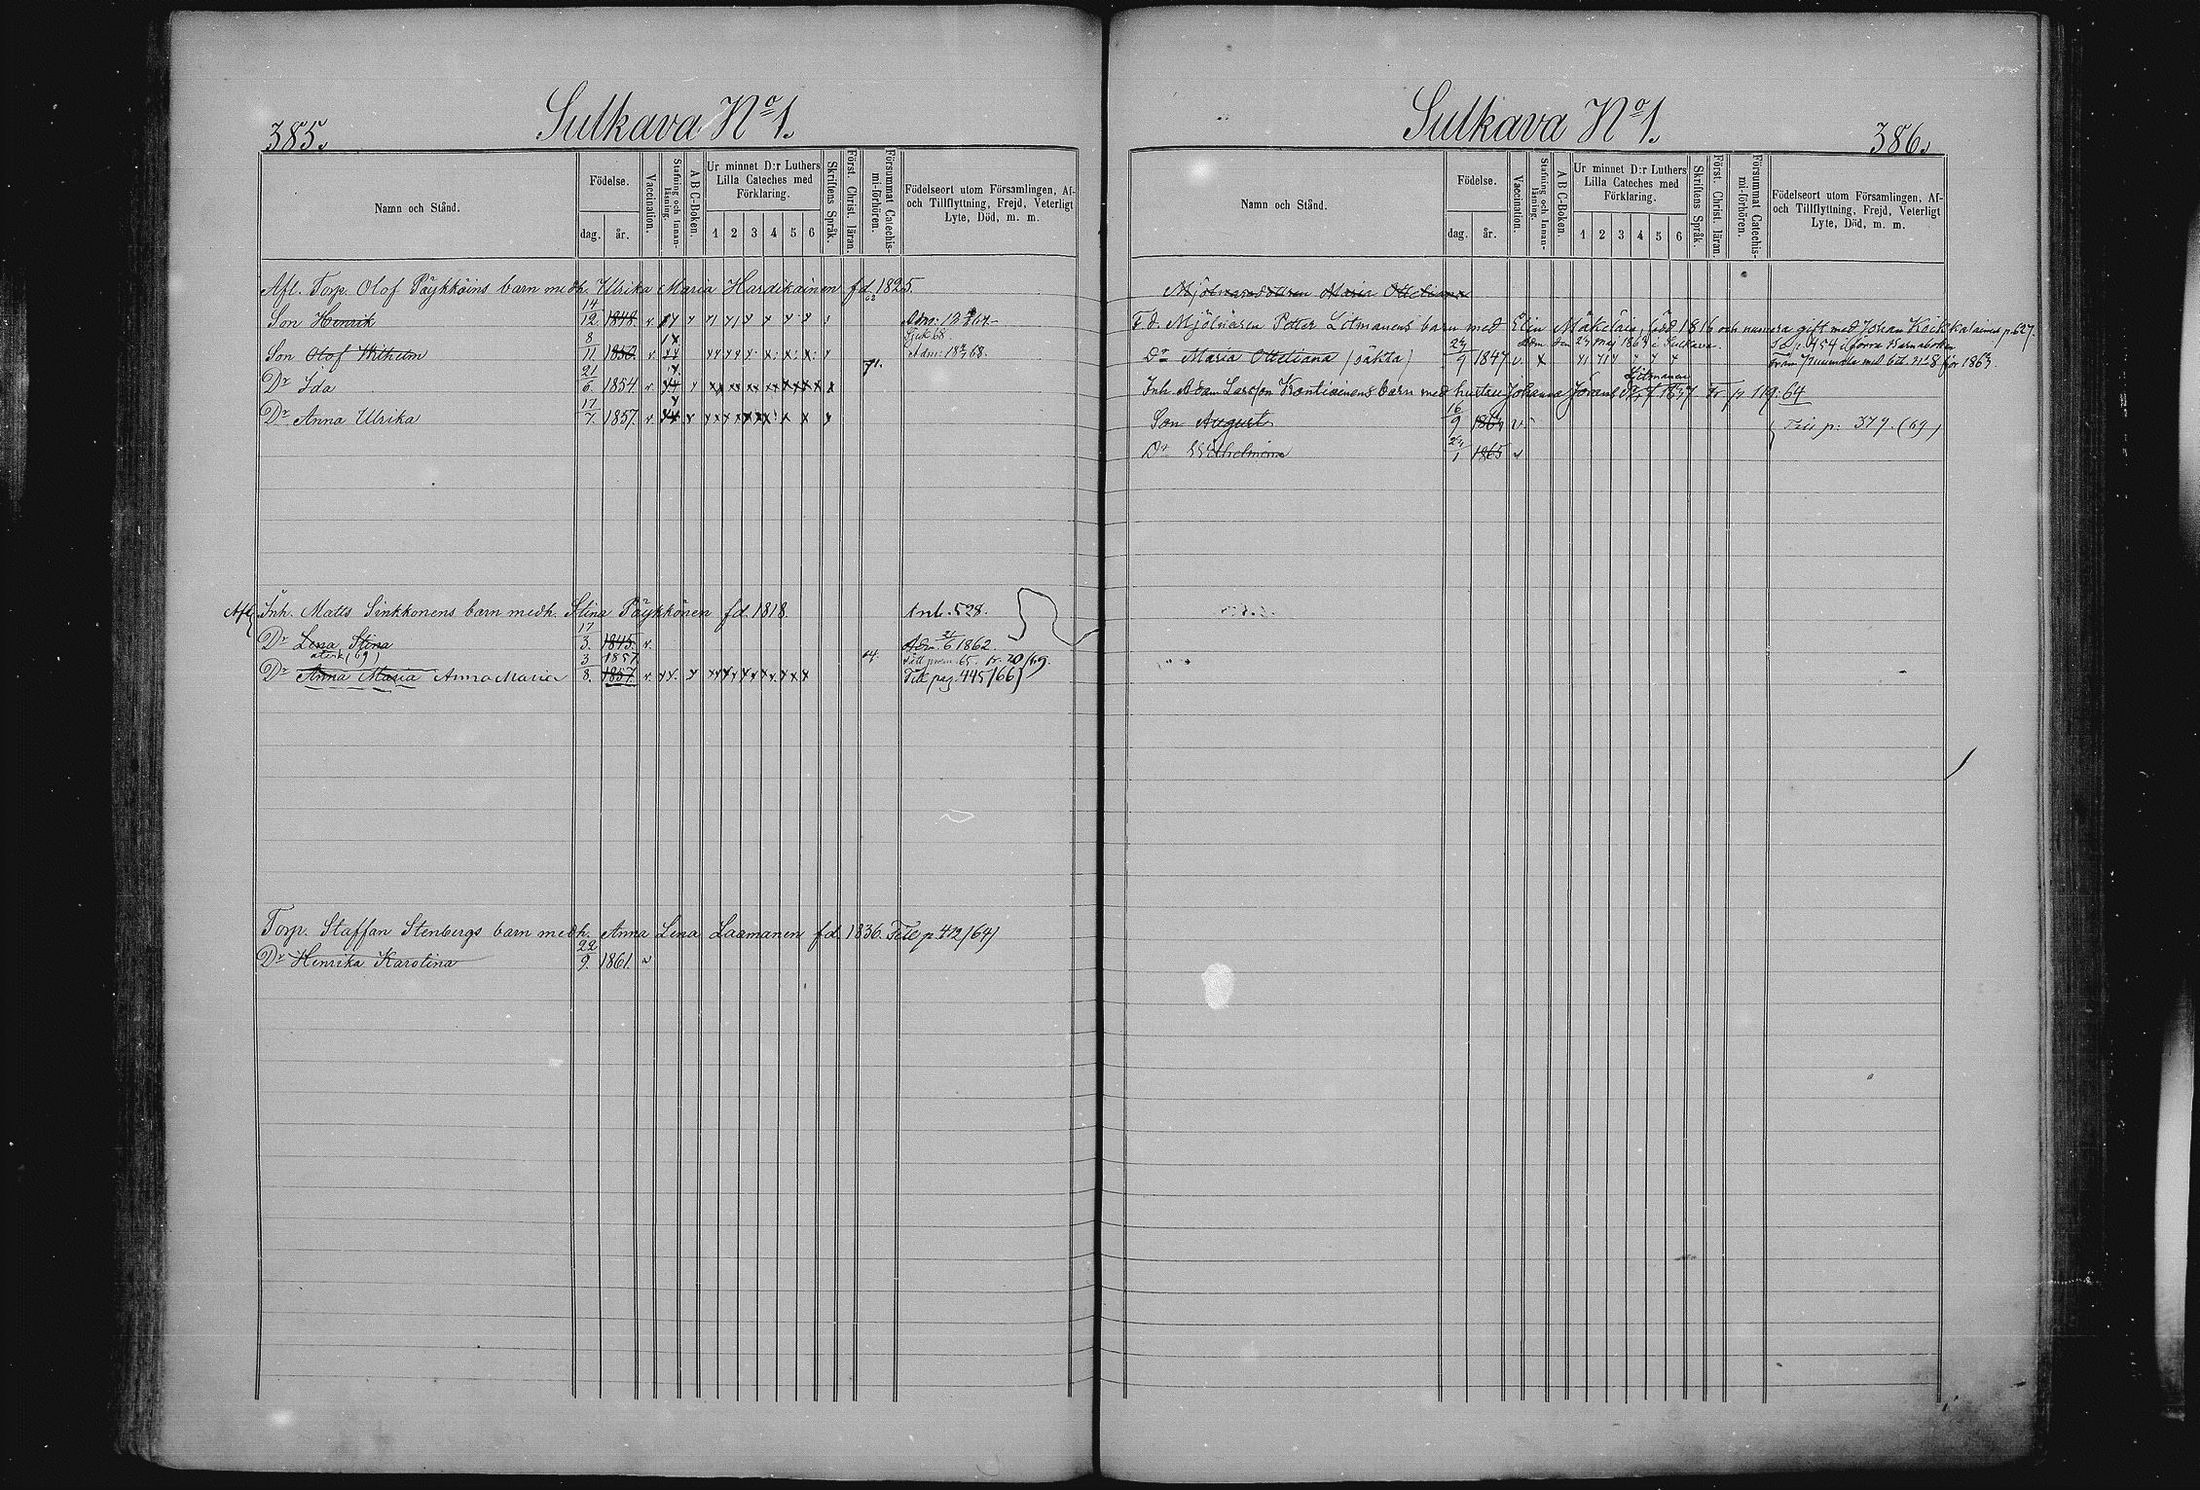 385.
Sulkava No 1.
Namn och Stånd.
Födelse.
dag.
år.
Vaccination.
Stafning och Innan-läsning.
A B C-Boken.
Ur minnet D:r Luthers Lilla Cateches med Förklaring.
1 2 3 4 5 6
Skriftens Språk.
Först. Christ. läran.
Försummat Catechis-mi-förhören.
Födelseort utom Församlingen, Af- och Tillflyttning, Frejd, Veterligt Lyte, Död, m. m.
Afl. Torp. Olof Pöykköins barn medh. Ulrika Maria Hardikainen fd. 1825.
Son Henrik 14/12 1848. v
Son Olof Wilhelm 8/11 1850. v Sjuk 68. Adm: 68.
Dr Ida 21/6 1854 v 71.
Dr Anna Ulrika 17/7. 1857. v
Afl. Inh. Matts Sinkkonens barn medh. Stina Pöykkönen fd. 1818. Ant. 528.
Dr Lena Stina 17/3. 1845. v. Adm. 1862.
Dr Anna Maria Anna Maria 3/8. 1857. 1857. v Till pag. 445 (66)
Torp. Staffan Stenbergs barn medh. Anna Lena Laamanen fd. 1836. Till p. 42 (64)
Dr Henrika Karolina 22/9. 1861. v
Sulkava No 1.
386.
Namn och Stånd.
Födelse.
dag.
år.
Vaccination.
Stafning och Innan-läsning.
A B C-Boken.
Ur minnet D:r Luthers Lilla Cateches med Förklaring.
1 2 3 4 5 6
Skriftens Språk.
Först. Christ. läran.
Försummat Catechis-mi-förhören.
Födelseort utom Församlingen, Af- och Tillflyttning, Frejd, Veterligt Lyte, Död, m. m.
Mjölnaredottren Maria Otteliana
F. d. Mjölnaren Petter Litmanens barn med Elin Mäkeläin, född 1816 och numera gift med Johan p. 627.
Adm den 24 Maj 1864 i Sulkava.
Dr Maria Otteliana (oäkta) 9 1847 v. Från Nummela med bet. No 8 för 1863.
Litmanen
Inh. Adam Larsson Kontiainens barn med hustru Johanna f 1837 Fr p 119. 64
Son August 16/9 v Till p: 379. (69)
Dr Wilhelmina 1 1865 v